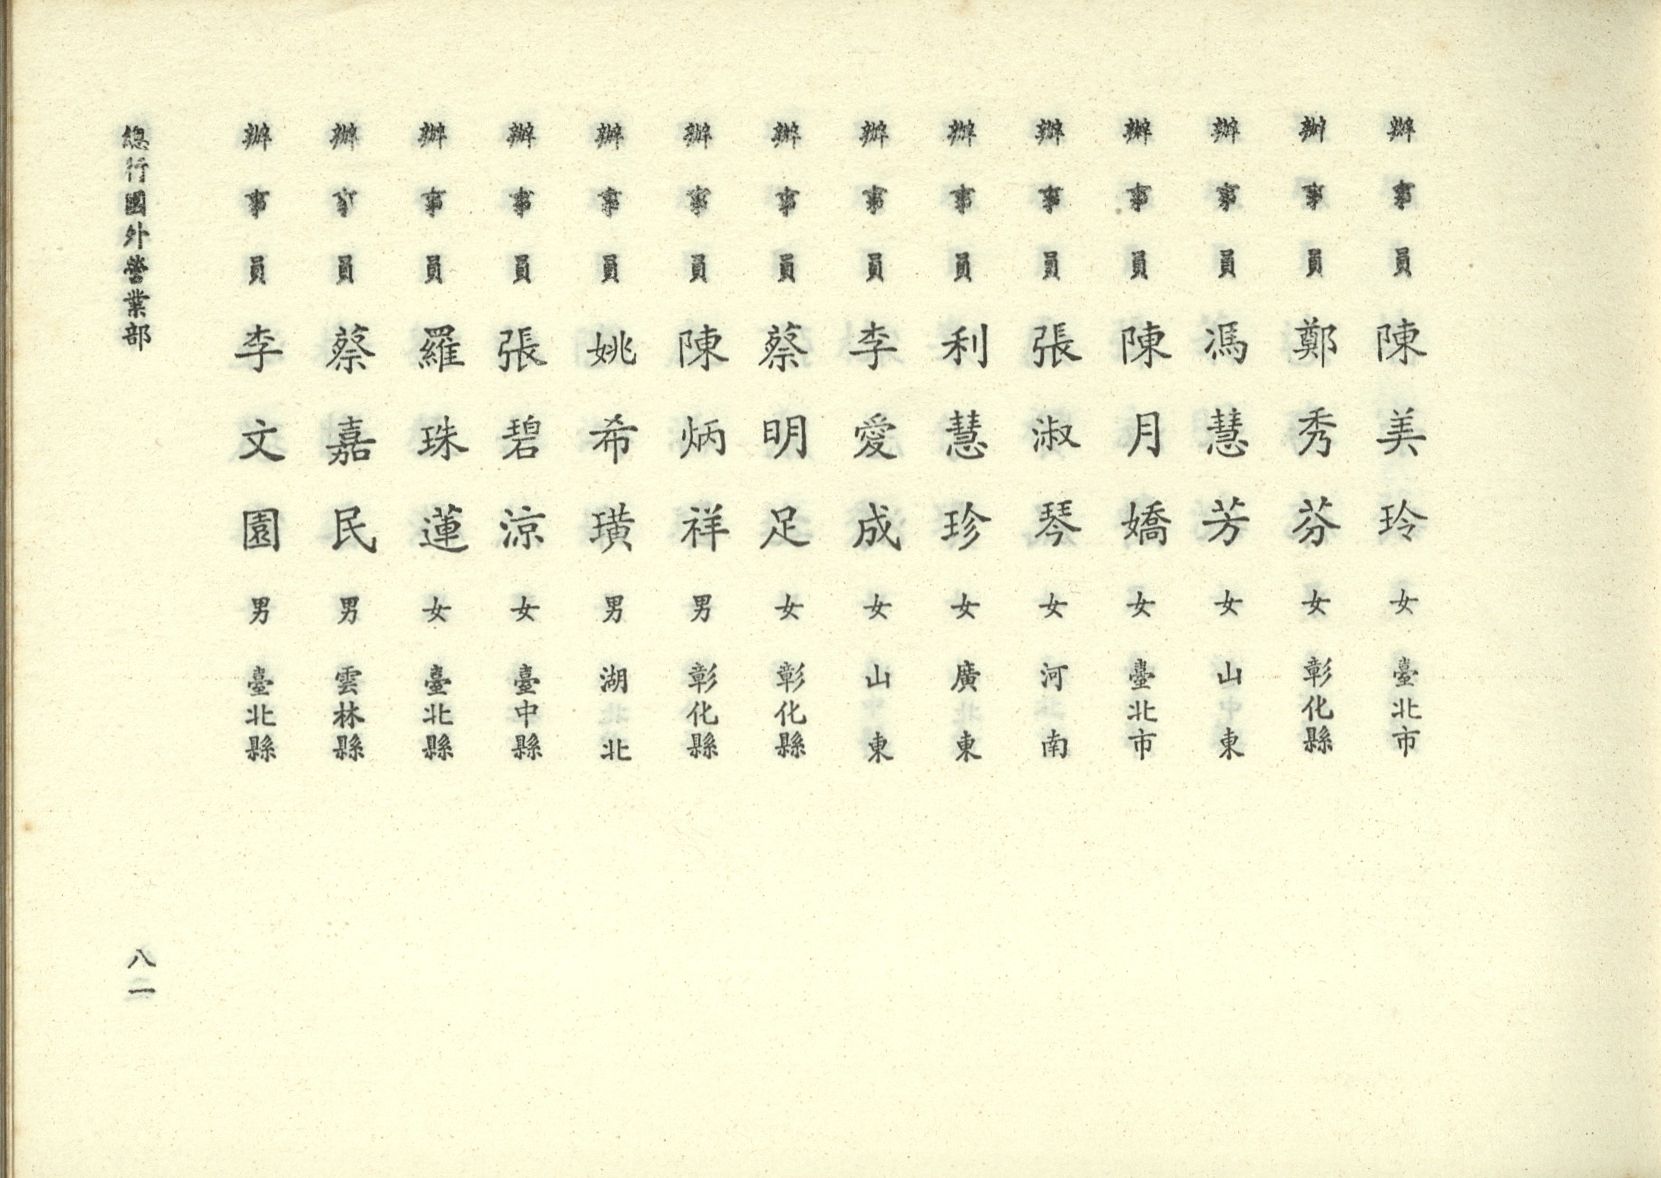 辦事員陳美玲女臺北市
辦事員鄭秀芬女彰化縣
辦事員馮慧芳女山東
辦事員陳月嬌女臺北市
辦事員張淑琴女河南
辦事員利慧珍女廣東
辦事員李愛成女山東
辦事員蔡明足女彰化縣
辦事員陳炳祥男彰化縣
辦事員姚希璜男湖北
辦事員張碧涼女臺中縣
辦事員羅珠蓮女臺北縣
辦事員蔡嘉民男雲林縣
辦事員李文園男臺北縣
總行國外營業部
八一